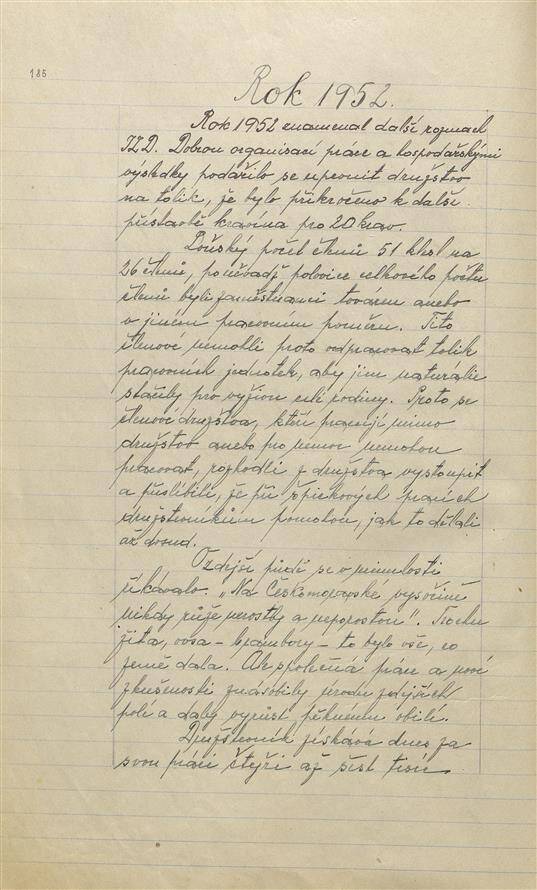 185
Rok 1952.
Rok 1952 znamenal další rozmach
JZD. Dobrou organisací práce a hospodářskými
výsledky podařilo se upevnit družstvo
na tolik, že bylo přikročeno k další
přístavbě kravína pro 20 krav.
Loňský počet členů 51 klesl na
26 členů, poněvadž polovice celkového počtu
členů byli zaměstnanci továren anebo
v jiném pracovním poměru. Tito
členové nemohli proto odpracovat tolik
pracovních jednotek, aby jim naturálie
stačily pro výživu celé rodiny. Proto se
členové družstva, kteří pracují mimo
družstvo anebo pro nemoc nemohou
pracovat, rozhodli z družstva vystoupit
a přislíbili, že při špickových pracích
družstevníkům pomohou, jak to dělali
až dosud.
O zdejší půdě se v minulosti
říkávalo. „Na Českomoravské vysočině
nikdy růže nerostly a neporostou". Trochu
žita, ovsa - brambory - to bylo vše, co
země dala. Ale společná práce a nové
zkušenosti znásobily úrodu zdejších
polí a daly vyrůst pěknému obilí.
Družstevník získává dnes za
svou práci čtyři až šest tisíc